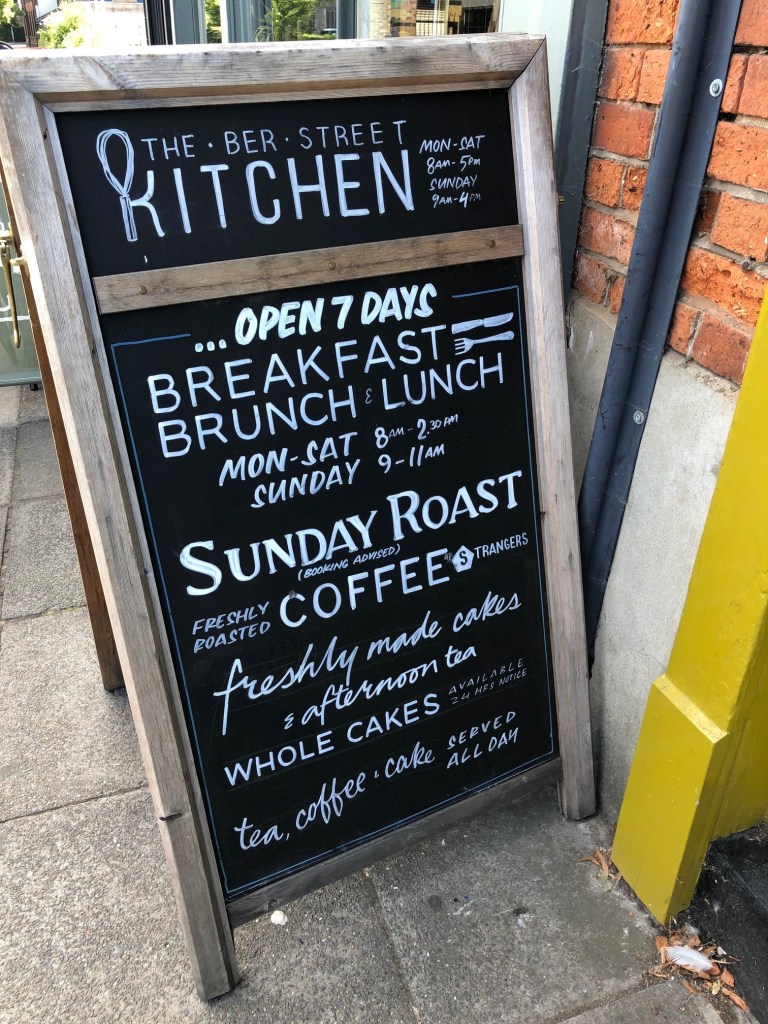 THE · BER · STREET
KITCHEN
MON-SAT
8AM-5PM
SUNDAY
9AM-4PM
...OPEN 7 DAYS
BREAKFAST
BRUNCH & LUNCH
MON-SAT 8AM-2.30PM
SUNDAY 9-11AM
SUNDAY ROAST
(BOOKING ADVISED)
FRESHLY
ROASTED
COFFEE
STRANGERS
freshly made cakes
& afternoon tea
WHOLE CAKES
AVAILABLE
24 HRS NOTICE
tea, coffee & cake
SERVED
ALL DAY